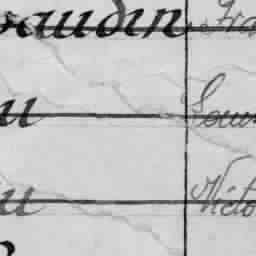 audin Fra
u Lou
u Victo